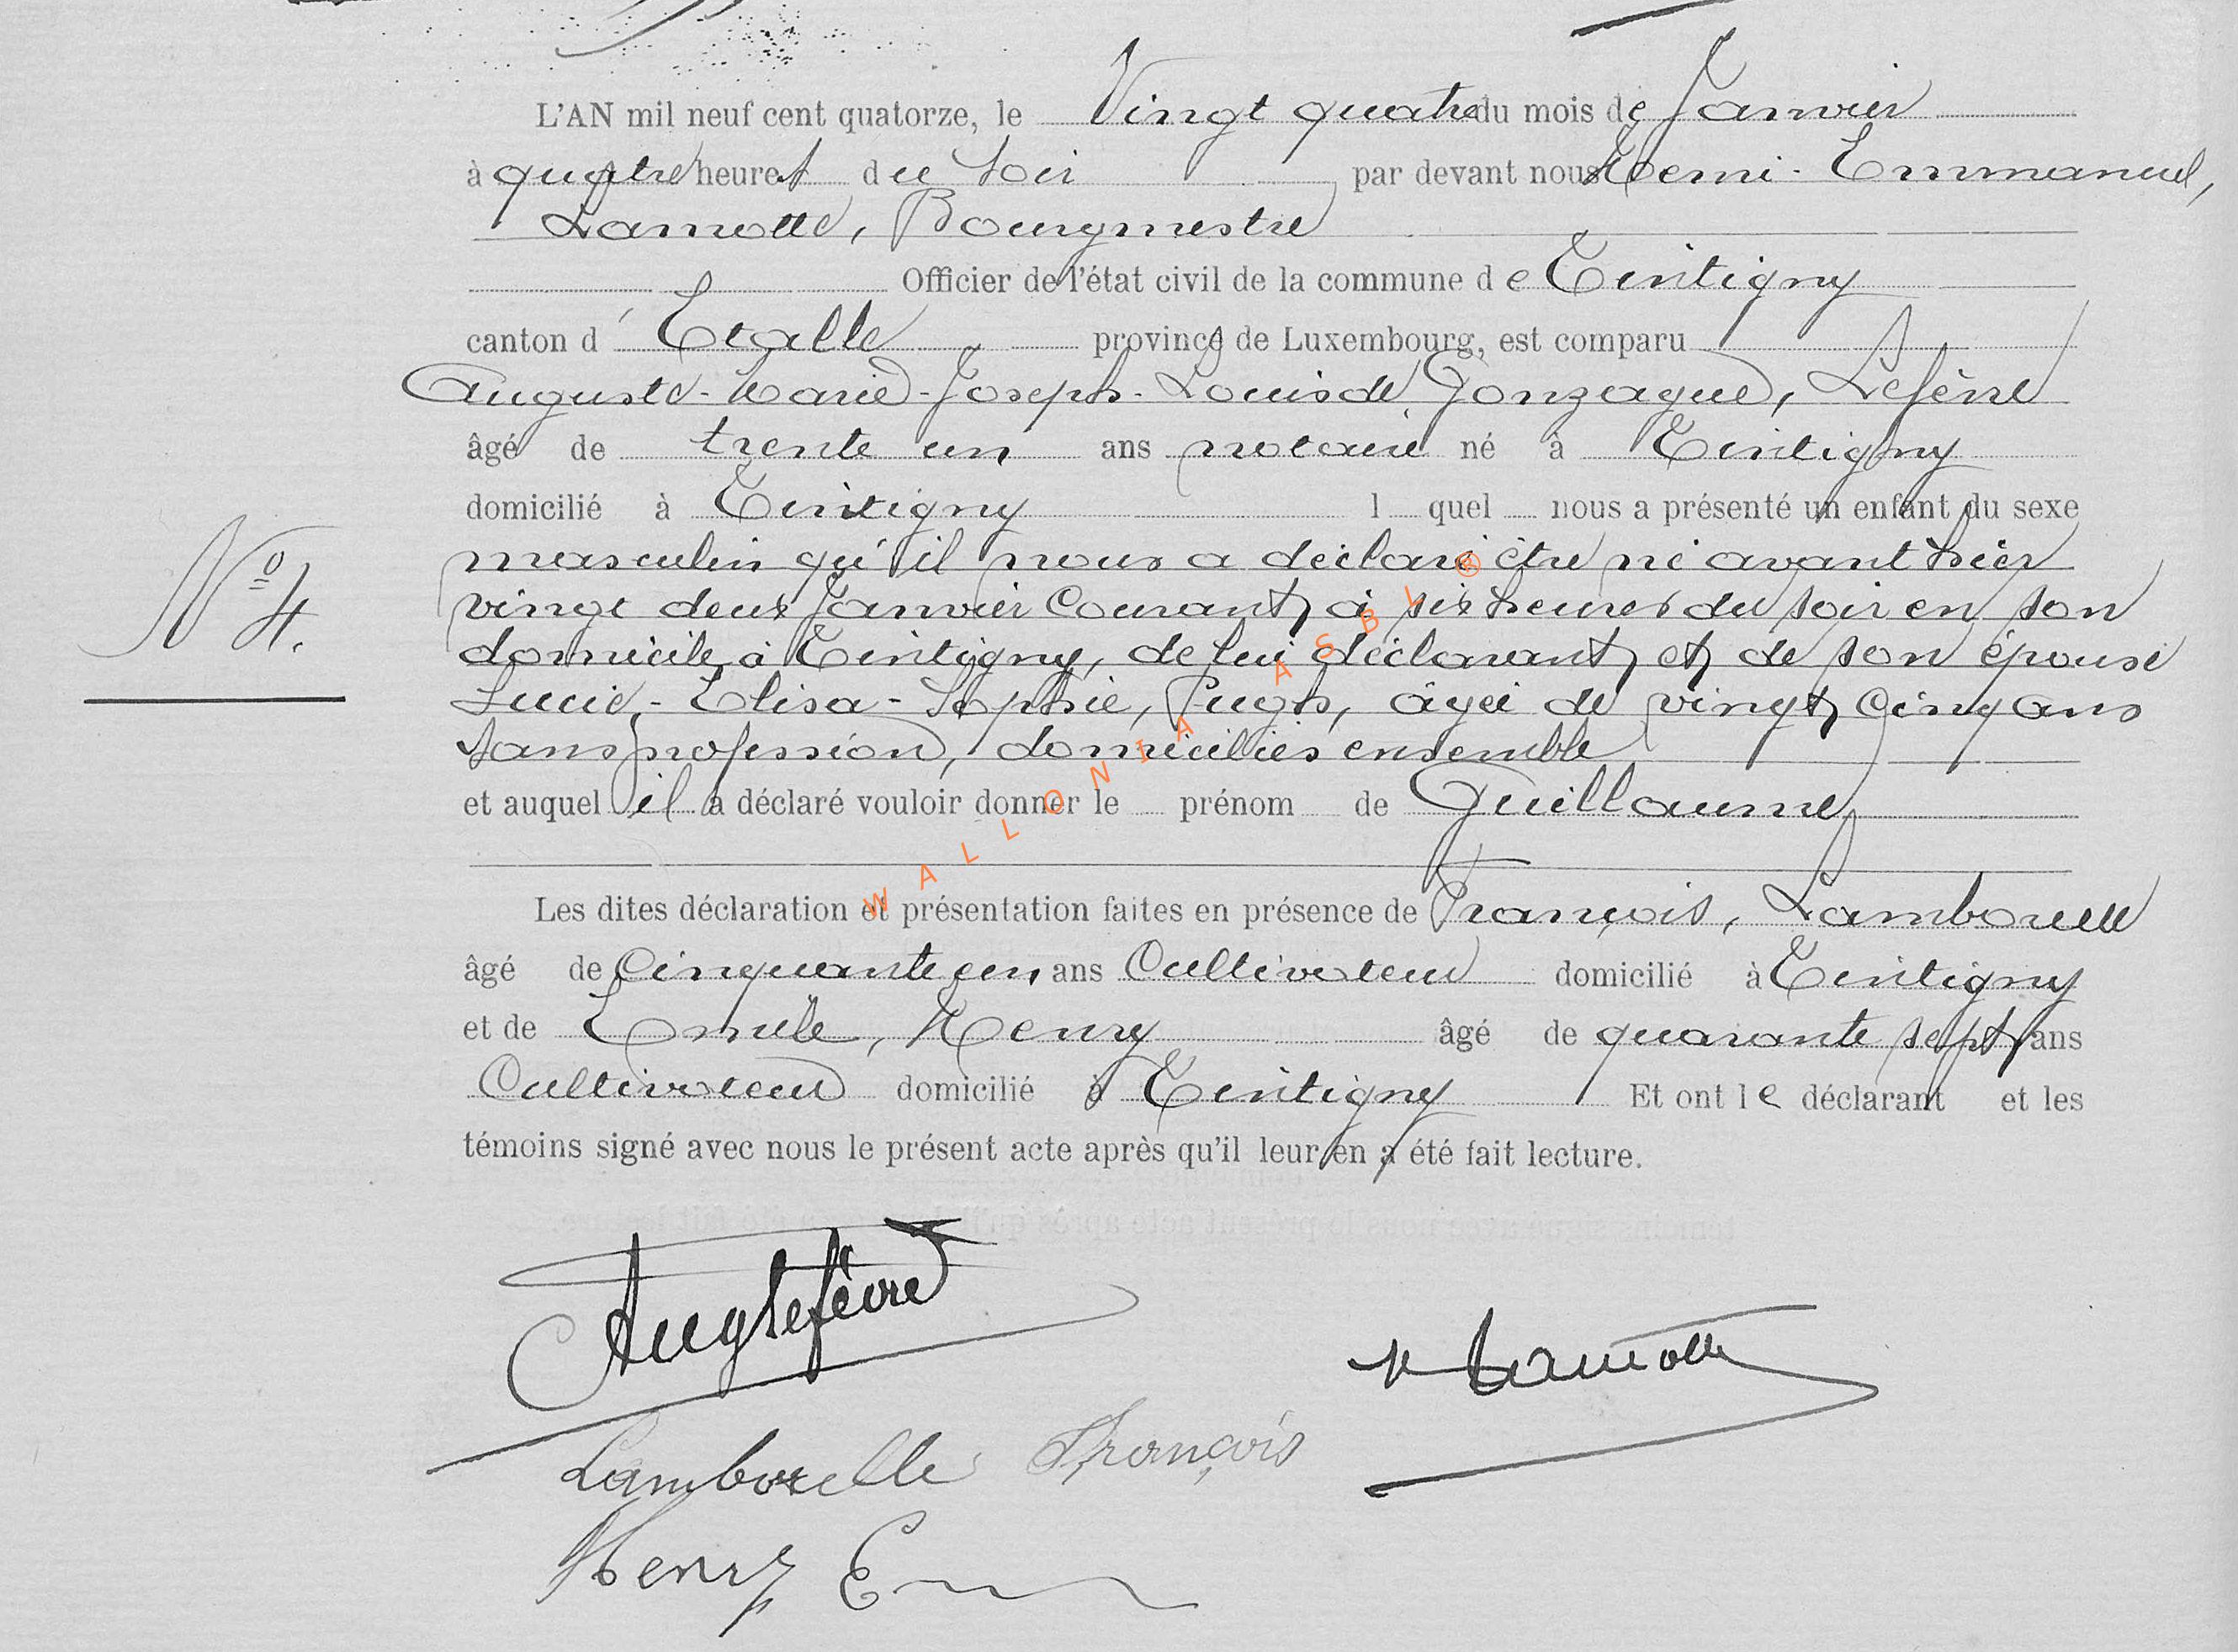 L'AN mil neuf cent quatorze, le Vingt quatre du mois de Janvier
à quatre heures du soir par devant nous Henri-Emmanuel,
Lamotte, Bourgmestre
Officier de l'état civil de la commune de Tintigny
canton d'Etalle province de Luxembourg, est comparu
Auguste-Marie-Joseph-Louis de Gonzague, Lefèvre
âgé de trente un ans notaire né à Tintigny
domicilié à Tintigny l quel nous a présenté un enfant du sexe
masculin qu'il nous a déclaré être né avant hier
vingt deux Janvier Courant, à six heures du soir en son
domicile à Tintigny, de lui déclarant et de son épouse
Lucie-Elisa-Sophie, Pugh, âgée de vingt cinq ans
sans profession, domiciliés ensemble
et auquel il a déclaré vouloir donner le prénom de Guillaume
Les dites déclaration et présentation faites en présence de François, Lamborelle
âgé de Cinquante un ans Cultivateur domicilié à Tintigny
et de Emile, Henry âgé de quarante sept ans
Cultivateur domicilié à Tintigny Et ont le déclarant et les
témoins signé avec nous le présent acte après qu'il leur en a été fait lecture.
N° 4.
Aug Lefèvre
H Lamotte
Lamborelle François
Henry E
WALLONIA ASBL ®